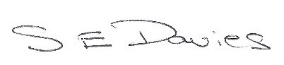 S E Davies